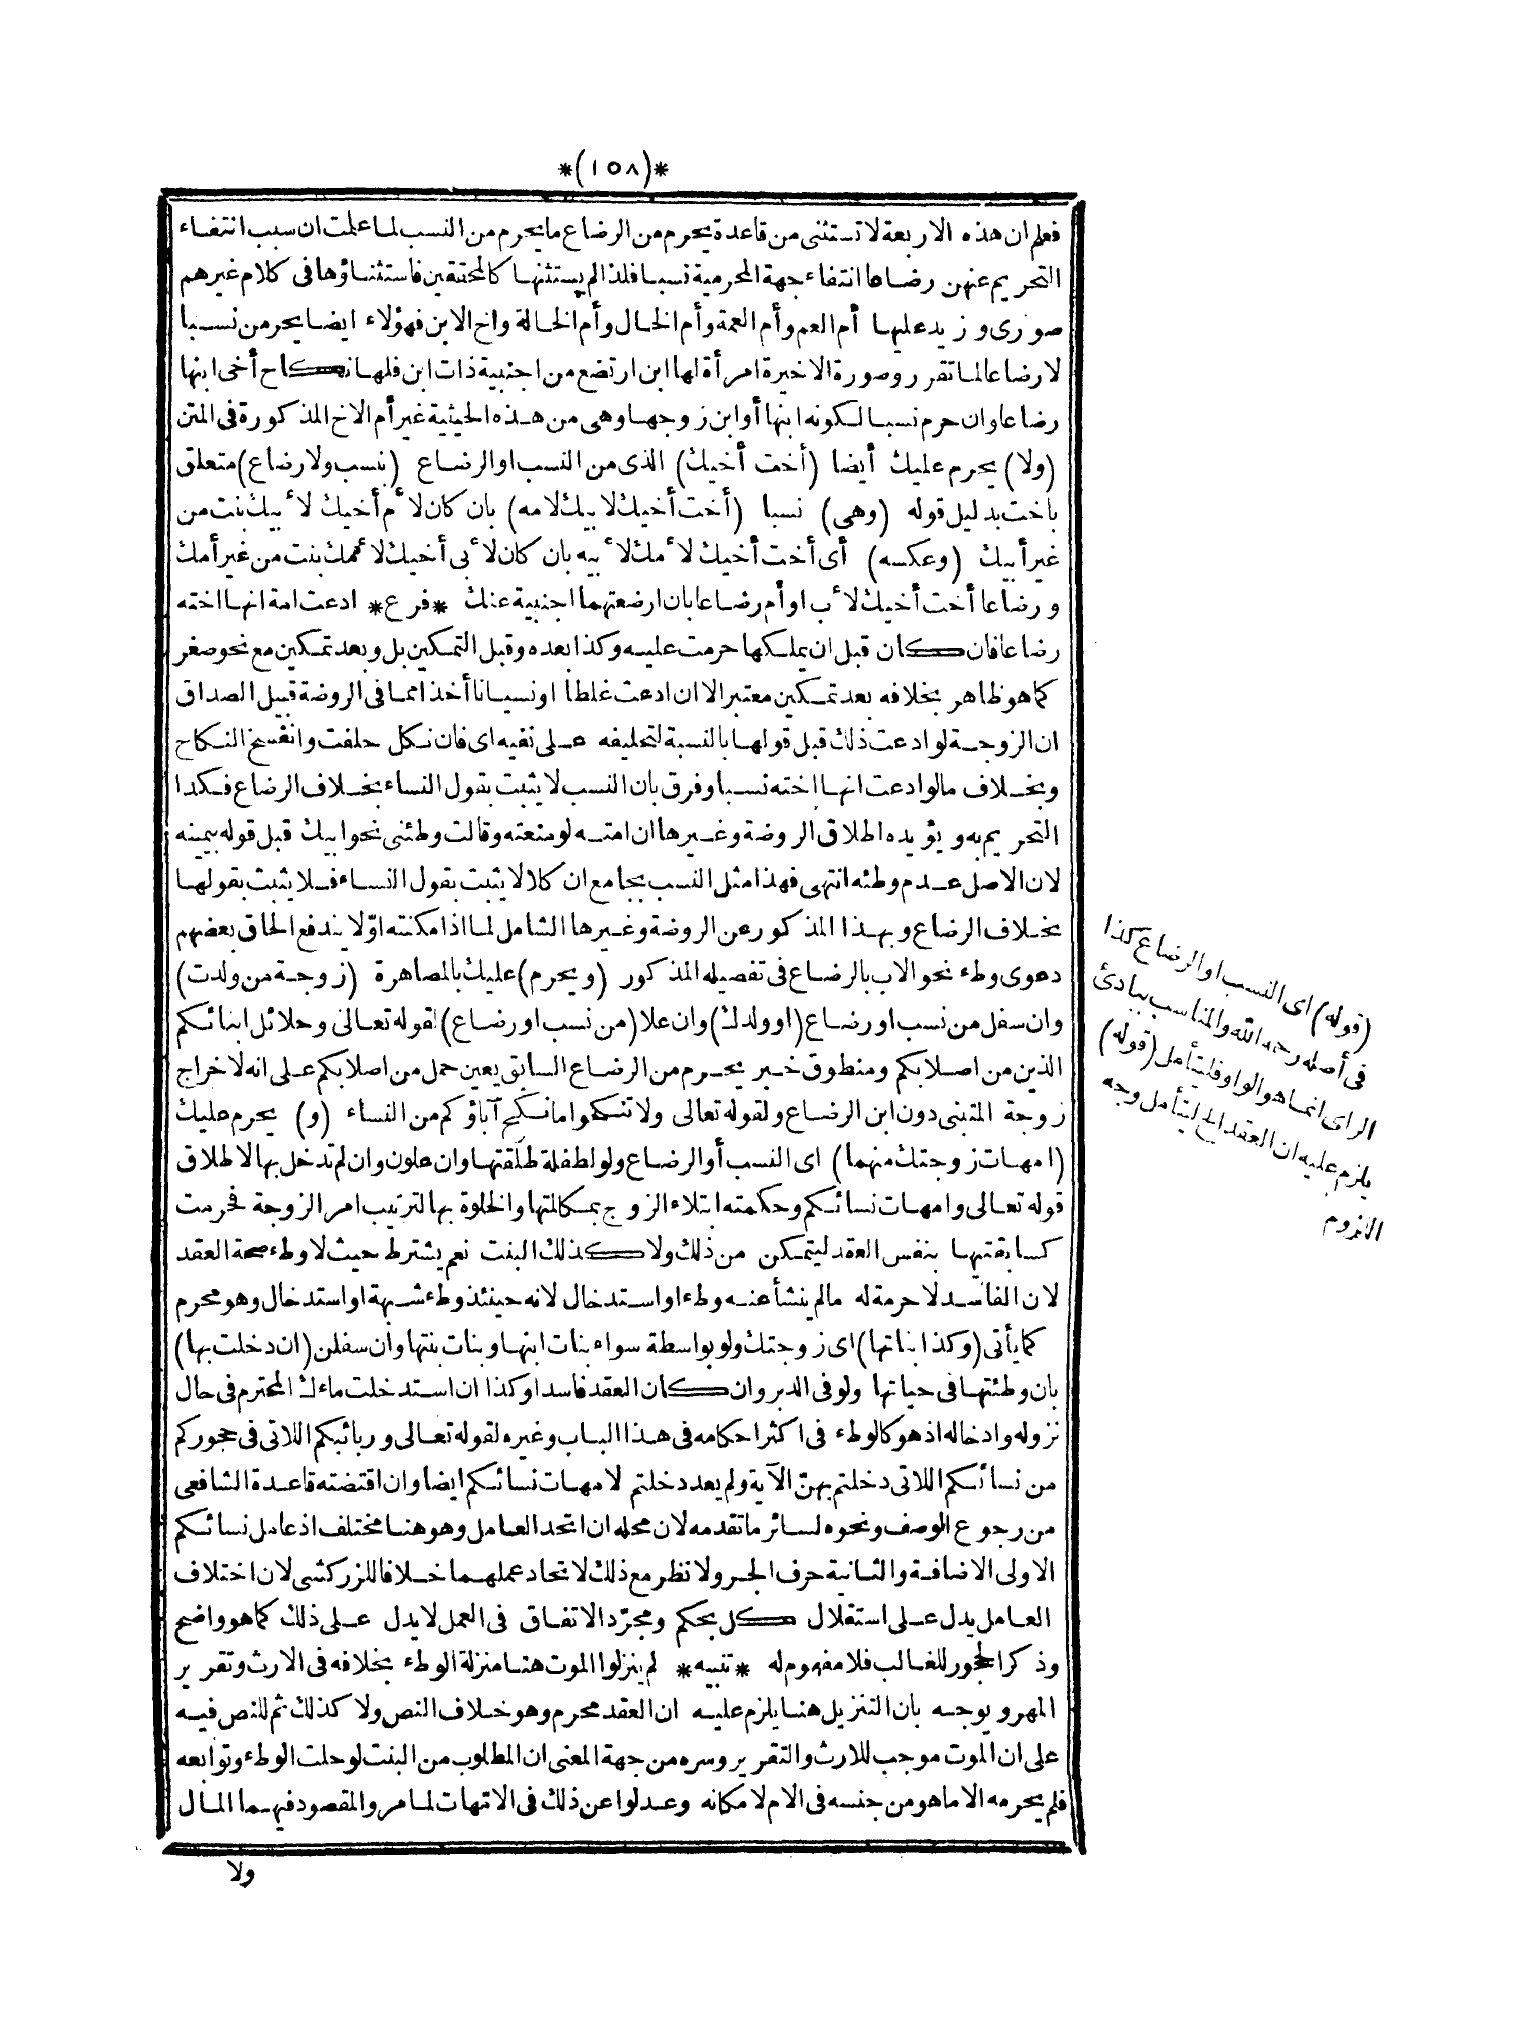 *(١٥٨)*
فعلم ان هذه الاربعة لا تستثنى من قاعدة يحرم من الرضاع ما يحرم من النسب لما علمت ان سبب انتفاء
التحريم عنهن رضاعا انتفاء جهة المحرمية نسبا فلذا لم يستثنها كالمحققين فاستثناؤها فى كلام غيرهم
صورى وزيد عليها أم العم وأم العمة وأم الخال وأم الخالة واخ الابن فهؤلاء ايضا يحرمن نسبا
لا رضاعا لما تقرر وصورة الاخيرة امرأة لها ابن ارتضع من اجنبية ذات ابن فلها نكاح أخى ابنها
رضاعا وان حرم نسبا لكونه ابنها أو ابن زوجها وهى من هذه الحيثية غير أم الاخ المذكورة فى المتن
(ولا) يحرم عليك أيضا (أخت أخيك) الذى من النسب او الرضاع (بنسب ولا رضاع) متعلق
باخت بدليل قوله (وهى) نسبا (أخت أخيك لابيك لامه) بان كان لأم أخيك لأبيك بنت من
غير أبيك (وعكسه) أى أخت أخيك لأمك لأبيه بان كان لأبى أخيك لأمك بنت من غير أمك
ورضاعا أخت أخيك لأب او أم رضاعا بان ارضعتهما اجنبية عنك *فرع* ادعت امة انها اخته
رضاعا فان كان قبل ان يملكها حرمت عليه وكذا بعده وقبل التمكين بل وبعد تمكين مع نحو صغر
كما هو ظاهر بخلافه بعد تمكين معتبر الا ان ادعت غلطا او نسيانا أخذا مما فى الروضة قبيل الصداق
ان الزوجة لو ادعت ذلك قبل قولها بالنسبة لتحليفه على نفيه اى فان نكل حلفت وانفسخ النكاح
وبخلاف ما لو ادعت انها اخته نسبا وفرق بان النسب لا يثبت بقول النساء بخلاف الرضاع فكذا
التحريم به ويؤيده اطلاق الروضة وغيرها ان امته لو منعته وقالت وطئنى نحو ابيك قبل قوله بيمينه
لان الاصل عدم وطئه انتهى فهذا مثل النسب بجامع ان كلا لا يثبت بقول النساء فلا يثبت بقولها
بخلاف الرضاع وبهذا المذكور عن الروضة وغيرها الشامل لما اذا مكنته اوّلا يندفع الحاق بعضهم
دعوى وطء نحو الاب بالرضاع فى تفصيله المذكور (ويحرم) عليك بالمصاهرة (زوجة من ولدت)
وان سفل من نسب او رضاع (او ولدك) وان علا (من نسب او رضاع) لقوله تعالى وحلائل ابنائكم
الذين من اصلابكم ومنطوق خبر يحرم من الرضاع السابق يعين حمل من اصلابكم على انه لاخراج
زوجة المتبنى دون ابن الرضاع ولقوله تعالى ولا تنكحوا ما نكح آباؤكم من النساء (و) يحرم عليك
(امهات زوجتك منهما) اى النسب أو الرضاع ولو لطفلة طلقتها وان علون وان لم تدخل بها لاطلاق
قوله تعالى وامهات نسائكم وحكمته ابتلاء الزوج بمكالمتها والخلوة بها لترتيب امر الزوجة فحرمت
كسابقتيها بنفس العقد ليتمكن من ذلك ولا كذلك البنت نعم يشترط حيث لا وطء صحة العقد
لان الفاسد لا حرمة له ما لم ينشأ عنه وطء او استدخال لانه حينئذ وطء شبهة او استدخال وهو محرم
كما يأتى (وكذا بناتها) اى زوجتك ولو بواسطة سواء بنات ابنها وبنات بنتها وان سفلن (ان دخلت بها)
بان وطئتها فى حياتها ولو فى الدبر وان كان العقد فاسدا وكذا ان استدخلت ماءك المحترم فى حال
نزوله وادخاله اذ هو كالوطء فى اكثر احكامه فى هذا الباب وغيره لقوله تعالى وربائبكم اللاتى فى حجوركم
من نسائكم اللاتى دخلتم بهنّ الآية ولم يعد دخلتم لامهات نسائكم ايضا وان اقتضته قاعدة الشافعى
من رجوع الوصف ونحوه لسائر ما تقدمه لان محله ان اتحد العامل وهو هنا مختلف اذ عامل نسائكم
الاولى الاضافة والثانية حرف الجر ولا نظر مع ذلك لاتحاد عملهما خلافا للزركشى لان اختلاف
العامل يدل على استقلال كل بحكم ومجرّد الاتفاق فى العمل لا يدل على ذلك كما هو واضح
وذكر الحجور للغالب فلا مفهوم له *تنبيه* لم ينزلوا الموت هنا منزلة الوطء بخلافه فى الارث وتقرير
المهر ويوجه بان التنزيل هنا يلزم عليه ان العقد محرم وهو خلاف النص ولا كذلك ثم للنص فيه
على ان الموت موجب للارث والتقرير وسره من جهة المعنى ان المطلوب من البنت لو حلت الوطء وتوابعه
فلم يحرمه الا ما هو من جنسه فى الام لامكانه وعدلوا عن ذلك فى الامّهات لما مر والمقصود فيهما المال
ولا
(قوله) اى النسب او الرضاع كذا
فى أصله رحمه الله والمناسب ببادئ
الراى انما هو الواو فليتأمل (قوله)
يلزم عليه ان العقد الخ ليتأمل وجه
اللزوم